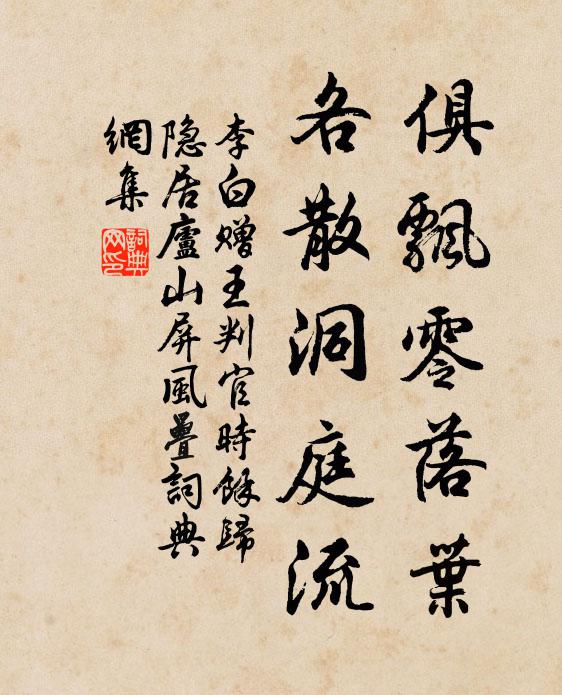 俱飄零落葉
各散洞庭流
李白贈王判官時餘歸
隐居廬山屏風疊詞典
網集
詞典
网印